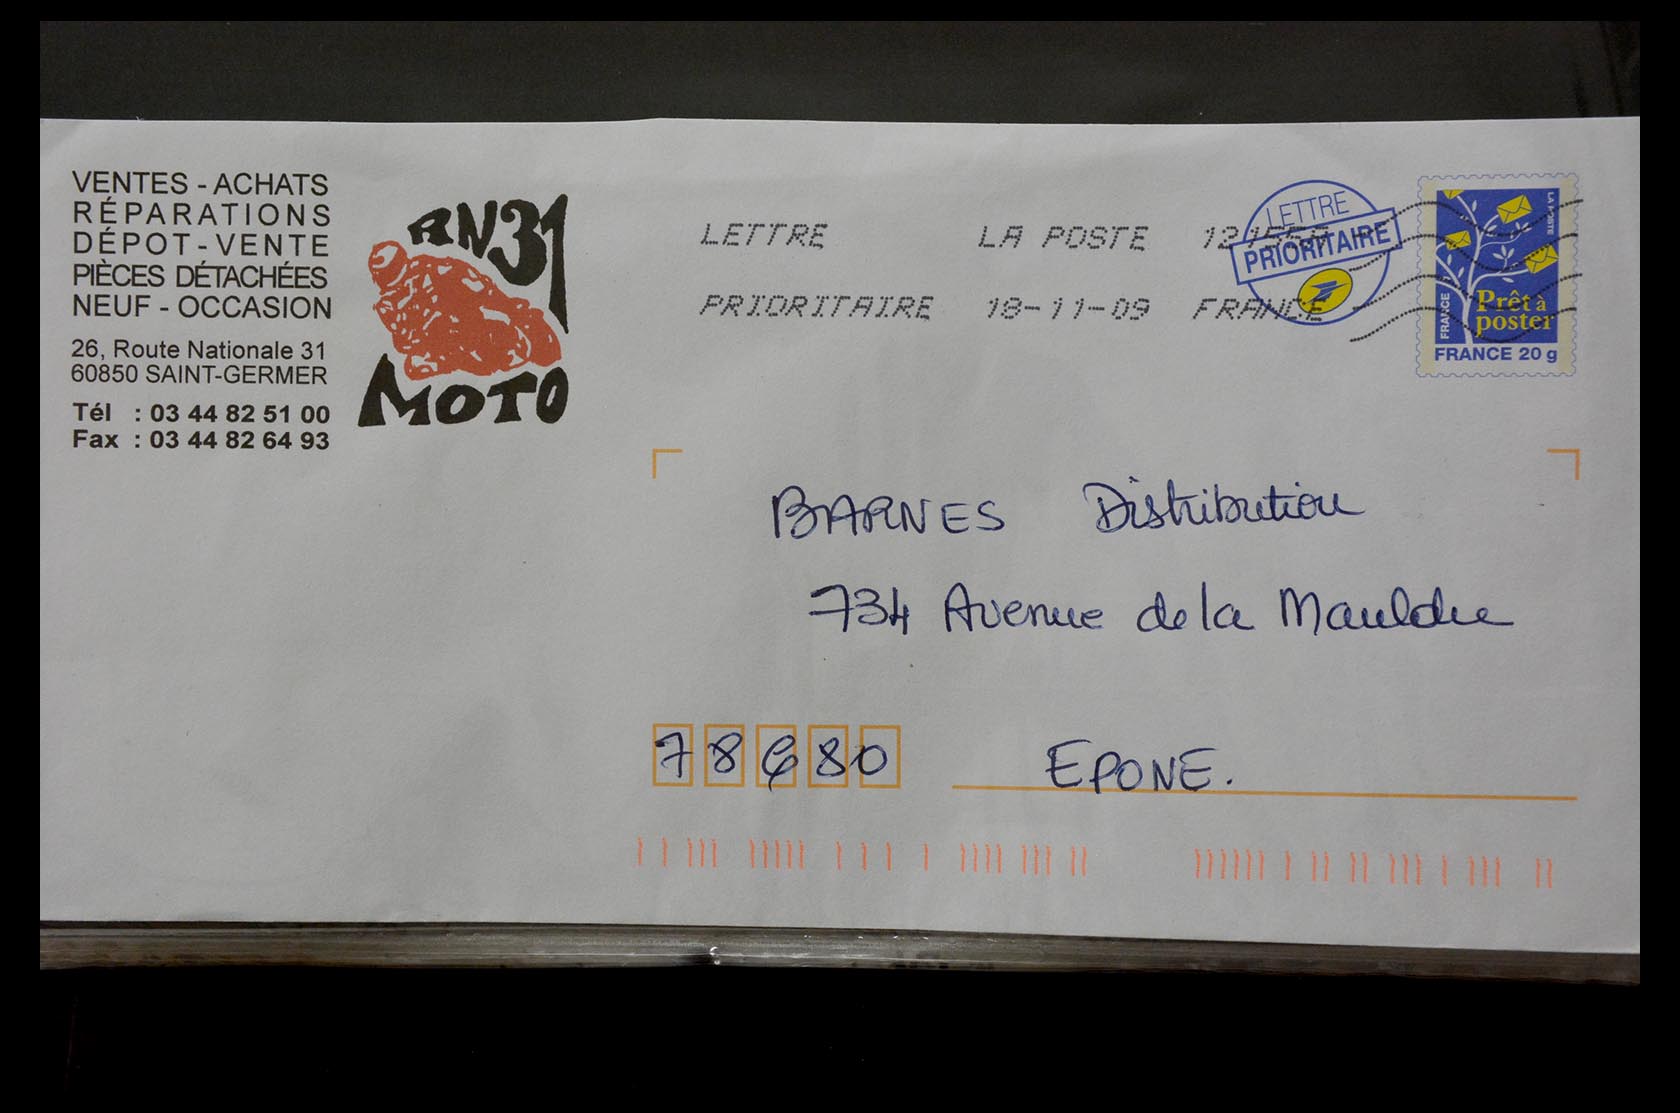 VENTES - ACHATS
RÉPARATIONS
DÉPOT - VENTE
PIÈCES DÉTACHÉES
NEUF - OCCASION
26, Route Nationale 31
60850 SAINT-GERMER
Tél : 03 44 82 51 00
Fax : 03 44 82 64 93
RN31
MOTO
LETTRE LA POSTE
PRIORITAIRE 18-11-09 FRANCE
LETTRE
PRIORITAIRE
LA POSTE
FRANCE
Prêt à
poster
FRANCE 20 g
BARNES Distribution
734 Avenue de la Mauldre
78680 EPONE.